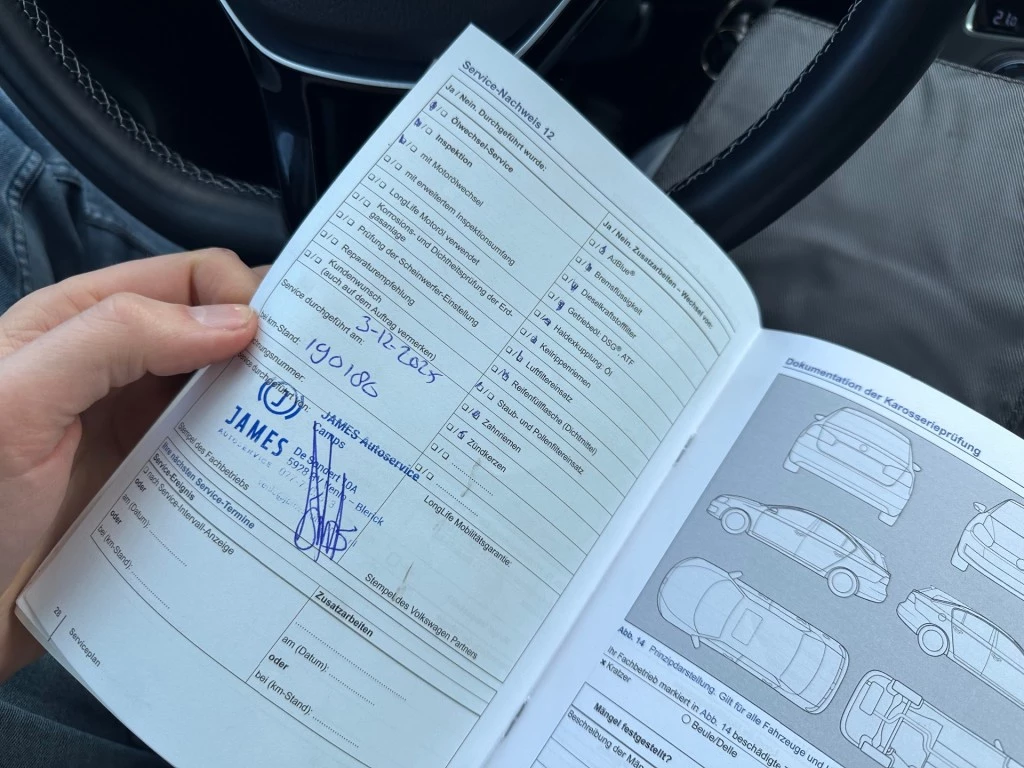 Service-Nachweis 12
Ja / Nein. Durchgeführt wurde:
Ölwechsel-Service
Inspektion
mit Motorölwechsel
mit erweitertem Inspektionsumfang
LongLife Motoröl verwendet
Korrosions- und Dichtheitsprüfung der Erd-
gasanlage
Prüfung der Scheinwerfer-Einstellung
Reparaturempfehlung
Kundenwunsch
(auch auf dem Auftrag vermerken)
Service durchgeführt am:
3-12-2025
km-Stand:
190186
JAMES
AUTOSERVICE
JAMES Autoservice
De Sondert 10A
5928
Blerick
Stempel des Fachbetriebs
Ja / Nein. Zusatzarbeiten - Wechsel von:
AdBlue®
Bremsflüssigkeit
Dieselkraftstofffilter
Getriebeöl DSG® ATF
Haldexkupplung: Öl
Keilrippenriemen
Luftfiltereinsatz
Reifenfüllflasche (Dichtmittel)
Staub- und Pollenfiltereinsatz
Zahnriemen
Zündkerzen
LongLife Mobilitätsgarantie:
Stempel des Volkswagen Partners
Ihre nächsten Service-Termine
Service-Ereignis
nach Service-Intervall-Anzeige
oder
am (Datum):
oder
bei (km-Stand):
Zusatzarbeiten
am (Datum):
oder
bei (km-Stand):
28
Serviceplan
Dokumentation der Karosserieprüfung
Abb. 14 Prinzipdarstellung. Gilt für alle Fahrzeuge und
Ihr Fachbetrieb markiert in Abb. 14 beschädigte
x Kratzer
O Beule/Delle
Mängel festgestellt?
Beschreibung der